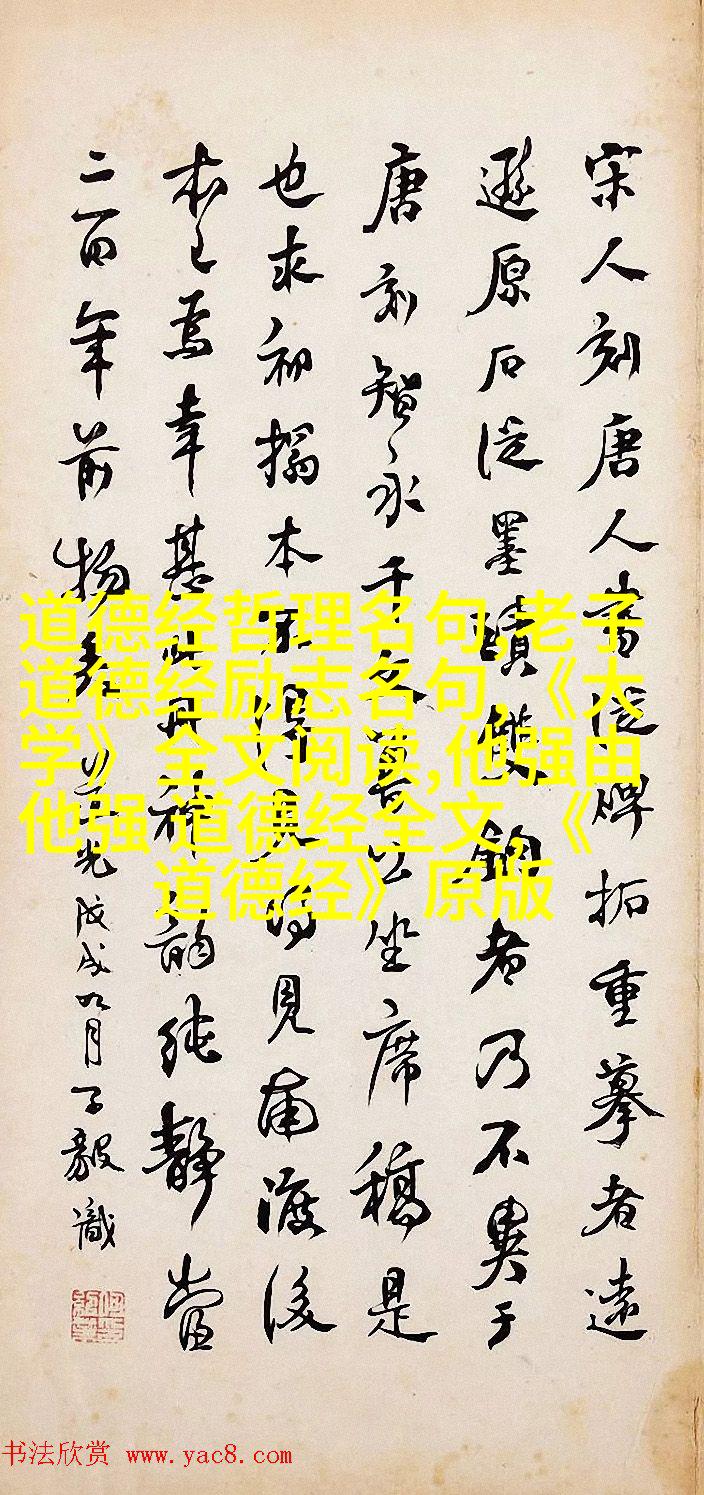 宋人刻唐人從碑拓重摹者遠
遜原石從墨蹟雙鉤者乃不異于
唐刻智永千文魯公坐席稿是
也求初搨本不得見得見南渡後
本已為幸甚此冊神韻純靜當
二百年前物道光戊戌九月子毅識
道德经哲理名句,老子
道德经励志名句,《大
学》全文阅读,他强由
他强 道德经全文,《
道德经》原版
书法欣赏 www.yac8.com